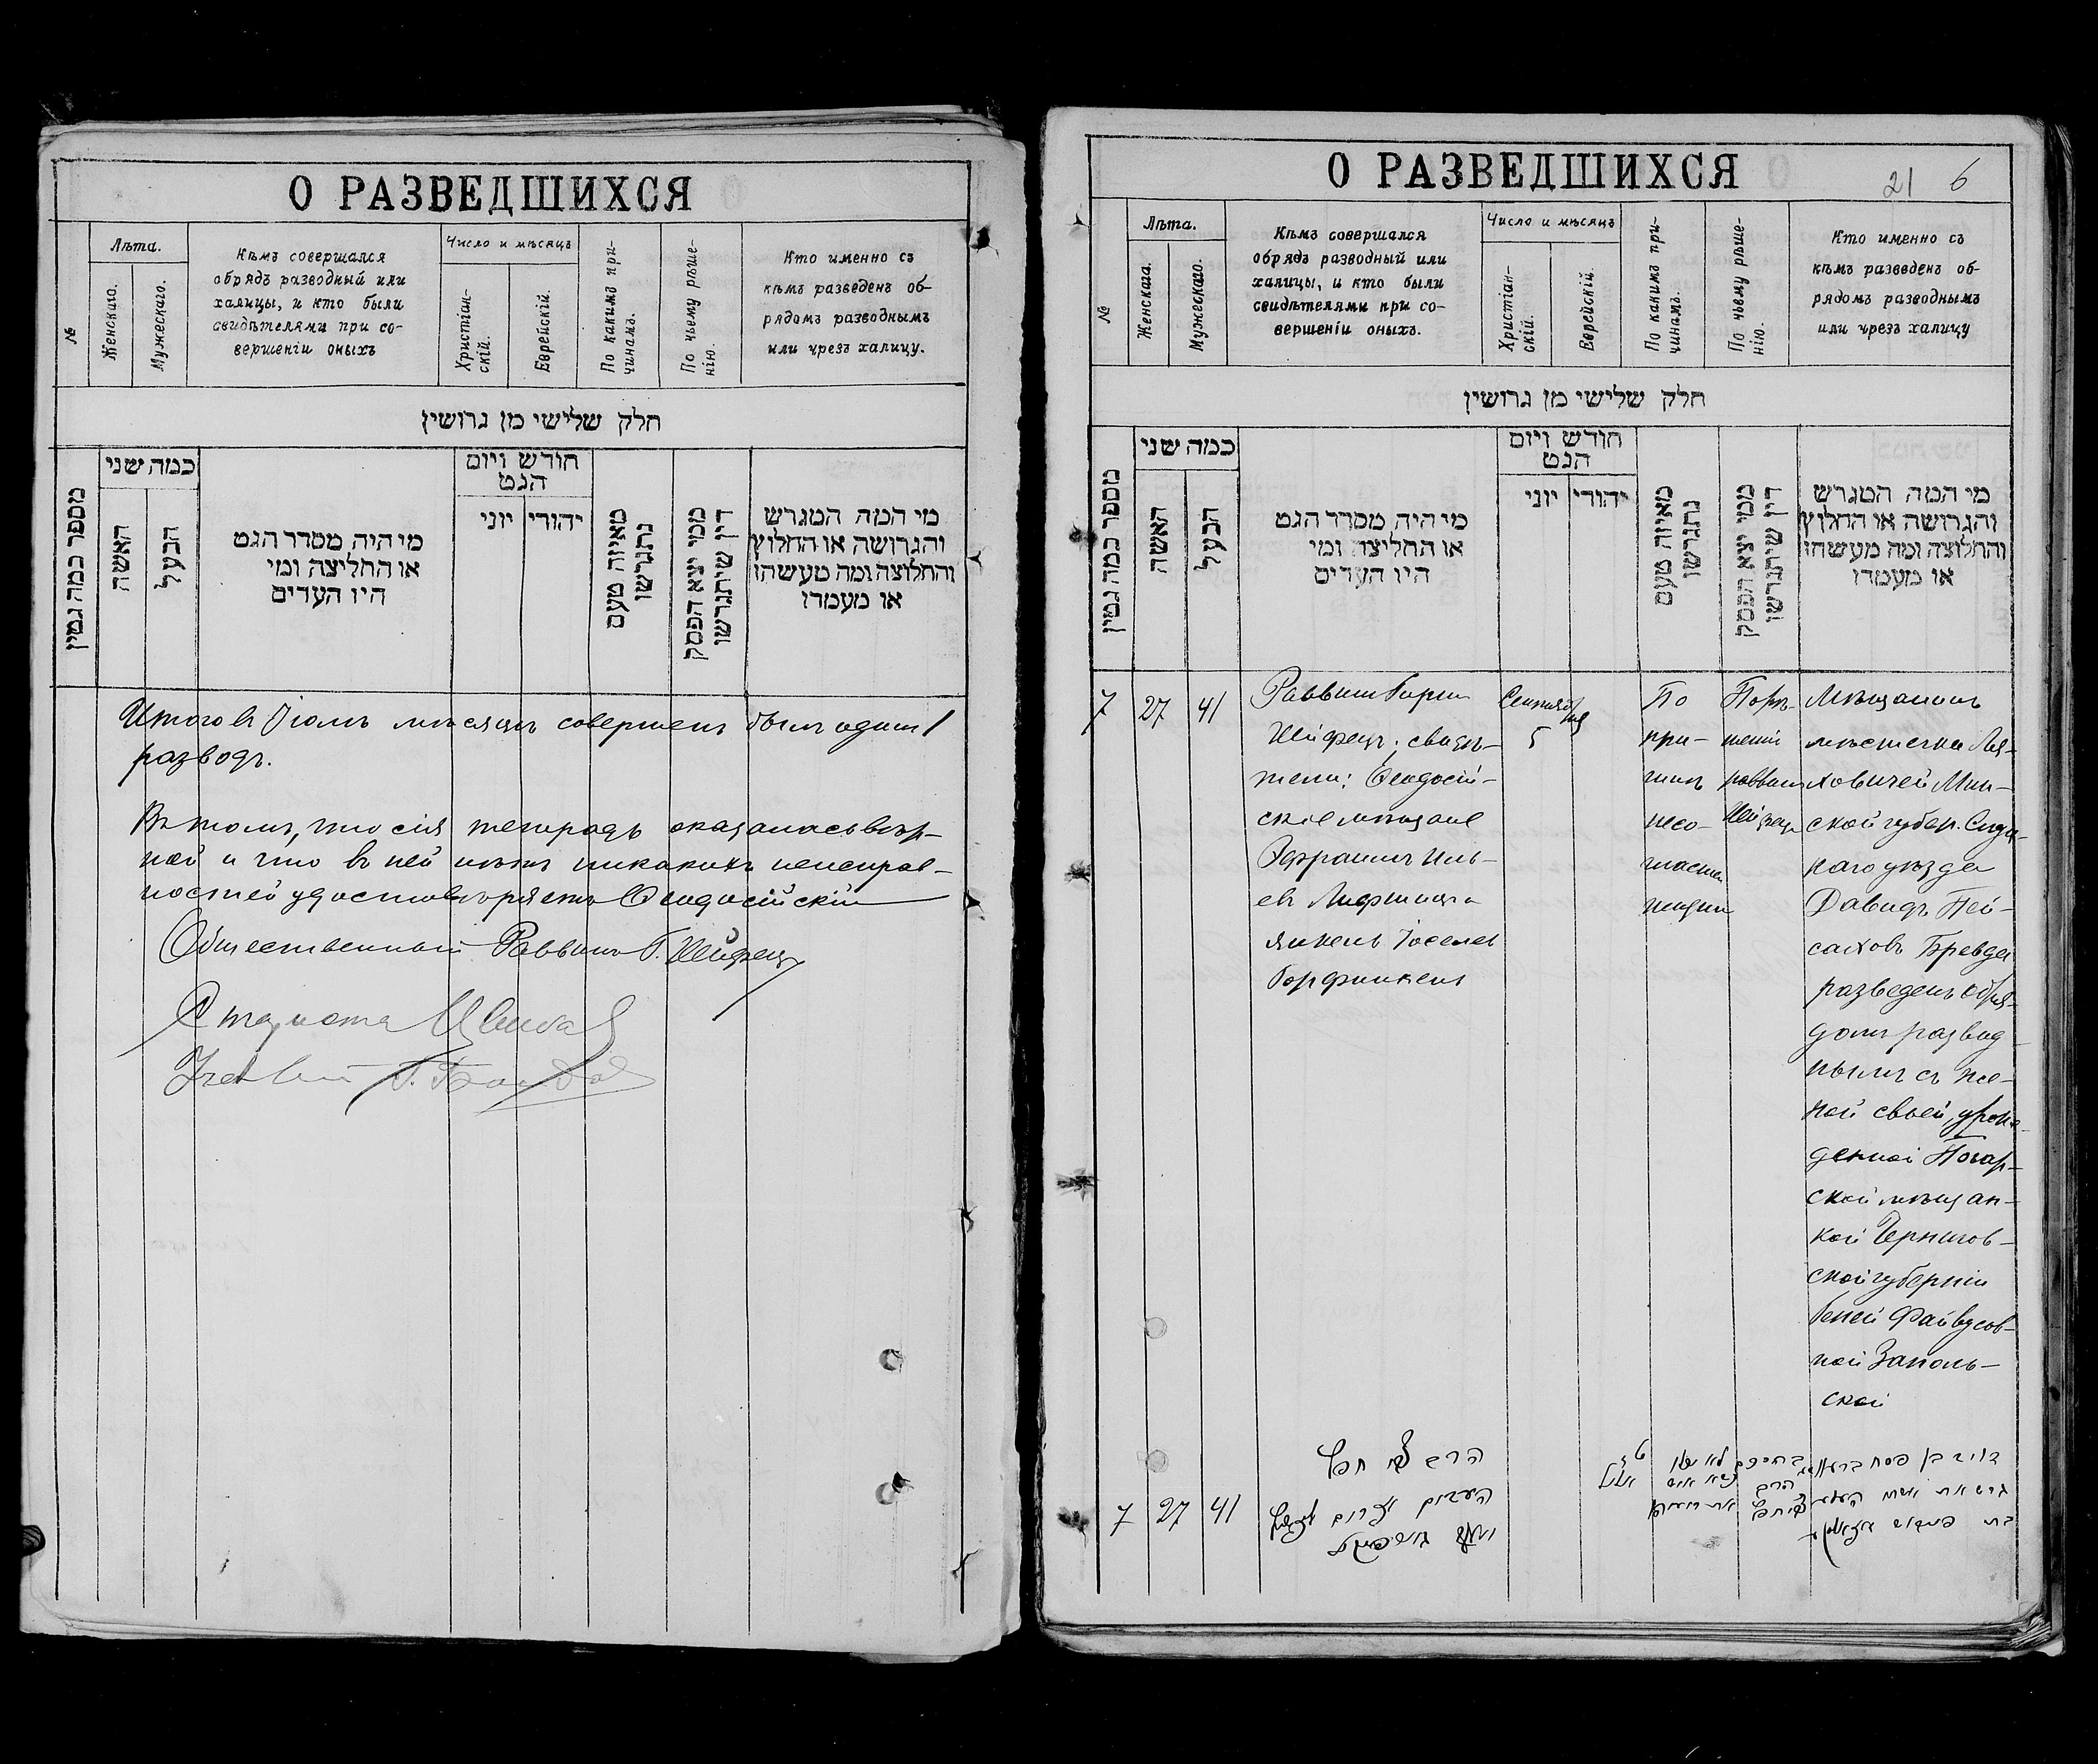 О РАЗВЕДШИХСЯ
№
Лѣта.
Женскаго.
Мужескаго.
Кѣмъ совершался
обрядъ разводный или
халицы, и кто были
свидѣтелями при со-
вершеніи оныхъ
Число и мѣсяцъ
Христіан-
скій.
Еврейскій.
По какимъ при-
чинамъ.
По чьему рѣше-
нію.
Кто именно съ
кѣмъ разведенъ об-
рядомъ разводнымъ
или чрезъ халицу.
חלק שלישי מן גרושין
מספר כמה גמין
כמה שני
האשה
הבעל
מי היה מסדר הגט
או החליצה ומי
היו העדים
חודש ויום
הגט
יהודי
יוני
מאיזה טעם
נתגרשו
ממי יצא הפסק
דין שיתגרשו
מי המה המגרש
והגרושה או החלוץ
והחלוצה ומה מעשהו
או מעמדו
Итого въ Іюлѣ мѣсяцѣ совершенъ былъ одинъ 1
разводъ.
Въ томъ, что сія тетрадь оказалась вѣр-
ной и что въ ней нѣтъ никакихъ неисправ-
ностей удостовѣряетъ Ѳеодосійскій
Общественный Раввинъ Г. Шифецъ
Староста
О РАЗВЕДШИХСЯ
21 6
№
Лѣта.
Женскаго.
Мужескаго.
Кѣмъ совершался
обрядъ разводный или
халицы, и кто были
свидѣтелями при со-
вершеніи оныхъ.
Число и мѣсяцъ
Христіан-
скій.
Еврейскій.
По какимъ при-
чинамъ.
По чьему рѣше-
нію.
Кто именно съ
кѣмъ разведенъ об-
рядомъ разводнымъ
или чрезъ халицу
חלק שלישי מן גרושין
מספר כמה גמין
כמה שני
האשה
הבעל
מי היה מסדר הגט
או החליצה ומי
היו העדים
חודש ויום
הגט
יהודי
יוני
מאיזה טעם
נתגרשו
ממי יצא הפסק
דין שיתגרשו
מי המה המגרש
והגרושה או החלוץ
והחלוצה ומה מעשהו
או מעמדו
7
27
41
Раввинъ Гирш
Шифецъ; свидѣ-
тели: Ѳеодосій-
скіе мѣщане
Эфраимъ Иль-
евъ Лифшицъ и
Янкель Іоселев
Горфинкель
Сентября
5
По
при-
чинѣ
несо-
гласія
жизни
По рѣ-
шенію
раввина
Шифеца
Мѣщанинъ
мѣстечка Ля-
ховичей Мин-
ской губер. Слуц-
каго уѣзда
Давидъ Пей-
саховъ Бревда
разведенъ обря-
домъ развод-
нымъ съ же-
ной своей, урож-
денной Погар-
ской мѣщан-
кой Чернигов-
ской губерніи
Геней Файвусов-
ной Заполь-
ской
7
27
41
הרב צבי חפץ
דוד בן פסח